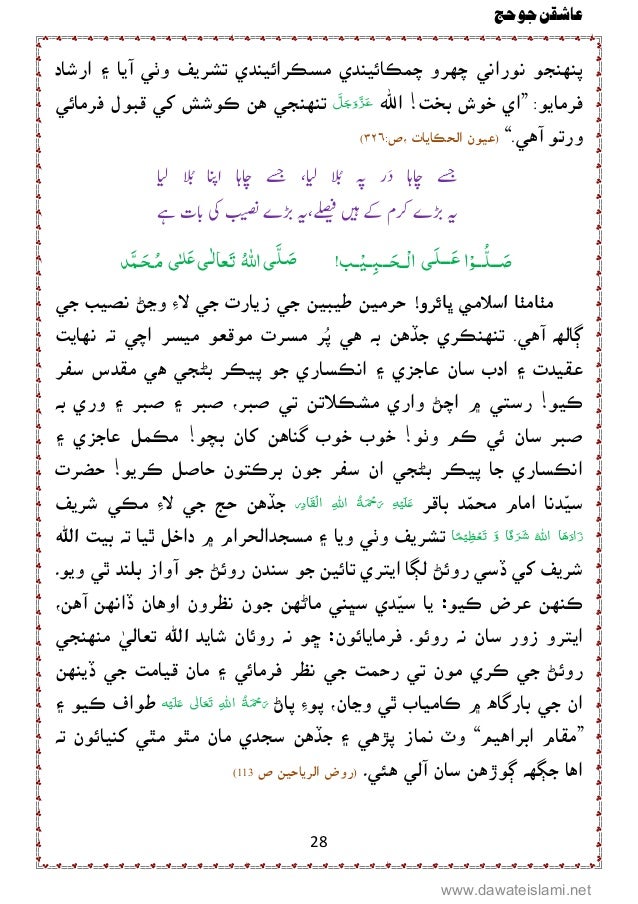 عاشقن جو حج
پنهنجو نوراني چهرو چمڪائيندي مسڪرائيندي تشريف وٺي آيا ۽ ارشاد
فرمايو: ”اي خوش بخت! الله عَزَّوَجَلَّ تنهنجي هن ڪوشش کي قبول فرمائي
ورتو آهي.“ (عيون الحكايات ،ص:٣٢٦)
جسے چاہا دَر پہ بُلا لیا، جسے چاہا اپنا بُلا لیا
یہ بڑے کرم کے ہیں فیصلے، یہ بڑے نصیب کی بات ہے
صَلُّوْا عَلَى الْحَبِيْب! صَلَّى اللّٰهُ تَعَالٰى عَلٰى مُحَمَّد
مٺامٺا اسلامي ڀائرو! حرمين طيبين جي زيارت جي لاءِ وڃڻ نصيب جي
ڳالهه آهي. تنهنڪري جڏهن به هي پُر مسرت موقعو ميسر اچي ته نهايت
عقيدت ۽ ادب سان عاجزي ۽ انڪساري جو پيڪر بڻجي هي مقدس سفر
ڪيو! رستي ۾ اچڻ واري مشڪلاتن تي صبر، صبر ۽ صبر ۽ وري به
صبر سان ئي ڪم وٺو! خوب خوب گناهن کان بچو! مڪمل عاجزي ۽
انڪساري جا پيڪر بڻجي ان سفر جون برڪتون حاصل ڪريو! حضرت
سيّدنا امام محمّد باقر عَلَيْهِ رَحْمَةُ اللهِ الْقَادِر جڏهن حج جي لاءِ مڪي شريف
زَادَهَا اللهُ شَرَفًا وَّ تَعْظِيْمًا تشريف وٺي ويا ۽ مسجدالحرام ۾ داخل ٿيا ته بيت الله
شريف کي ڏسي روئڻ لڳا ايتري تائين جو سندن روئڻ جو آواز بلند ٿي ويو.
ڪنهن عرض ڪيو: يا سيّدي سڀني ماڻهن جون نظرون اوهان ڏانهن آهن،
ايترو زور سان نه روئو. فرمايائون: ڇو نه روئان شايد الله تعاليٰ منهنجي
روئڻ جي ڪري مون تي رحمت جي نظر فرمائي ۽ مان قيامت جي ڏينهن
ان جي بارگاهه ۾ ڪامياب ٿي وڃان، پوءِ پاڻ رَحْمَةُ اللهِ تَعَالٰى عَلَيْه طواف ڪيو ۽
”مقام ابراهيم“ وٽ نماز پڙهي ۽ جڏهن سجدي مان مٿو مٿي کنيائون ته
اها جڳهه ڳوڙهن سان آلي هئي. (روض الرياحين ص 113)
28
www.dawateislami.net